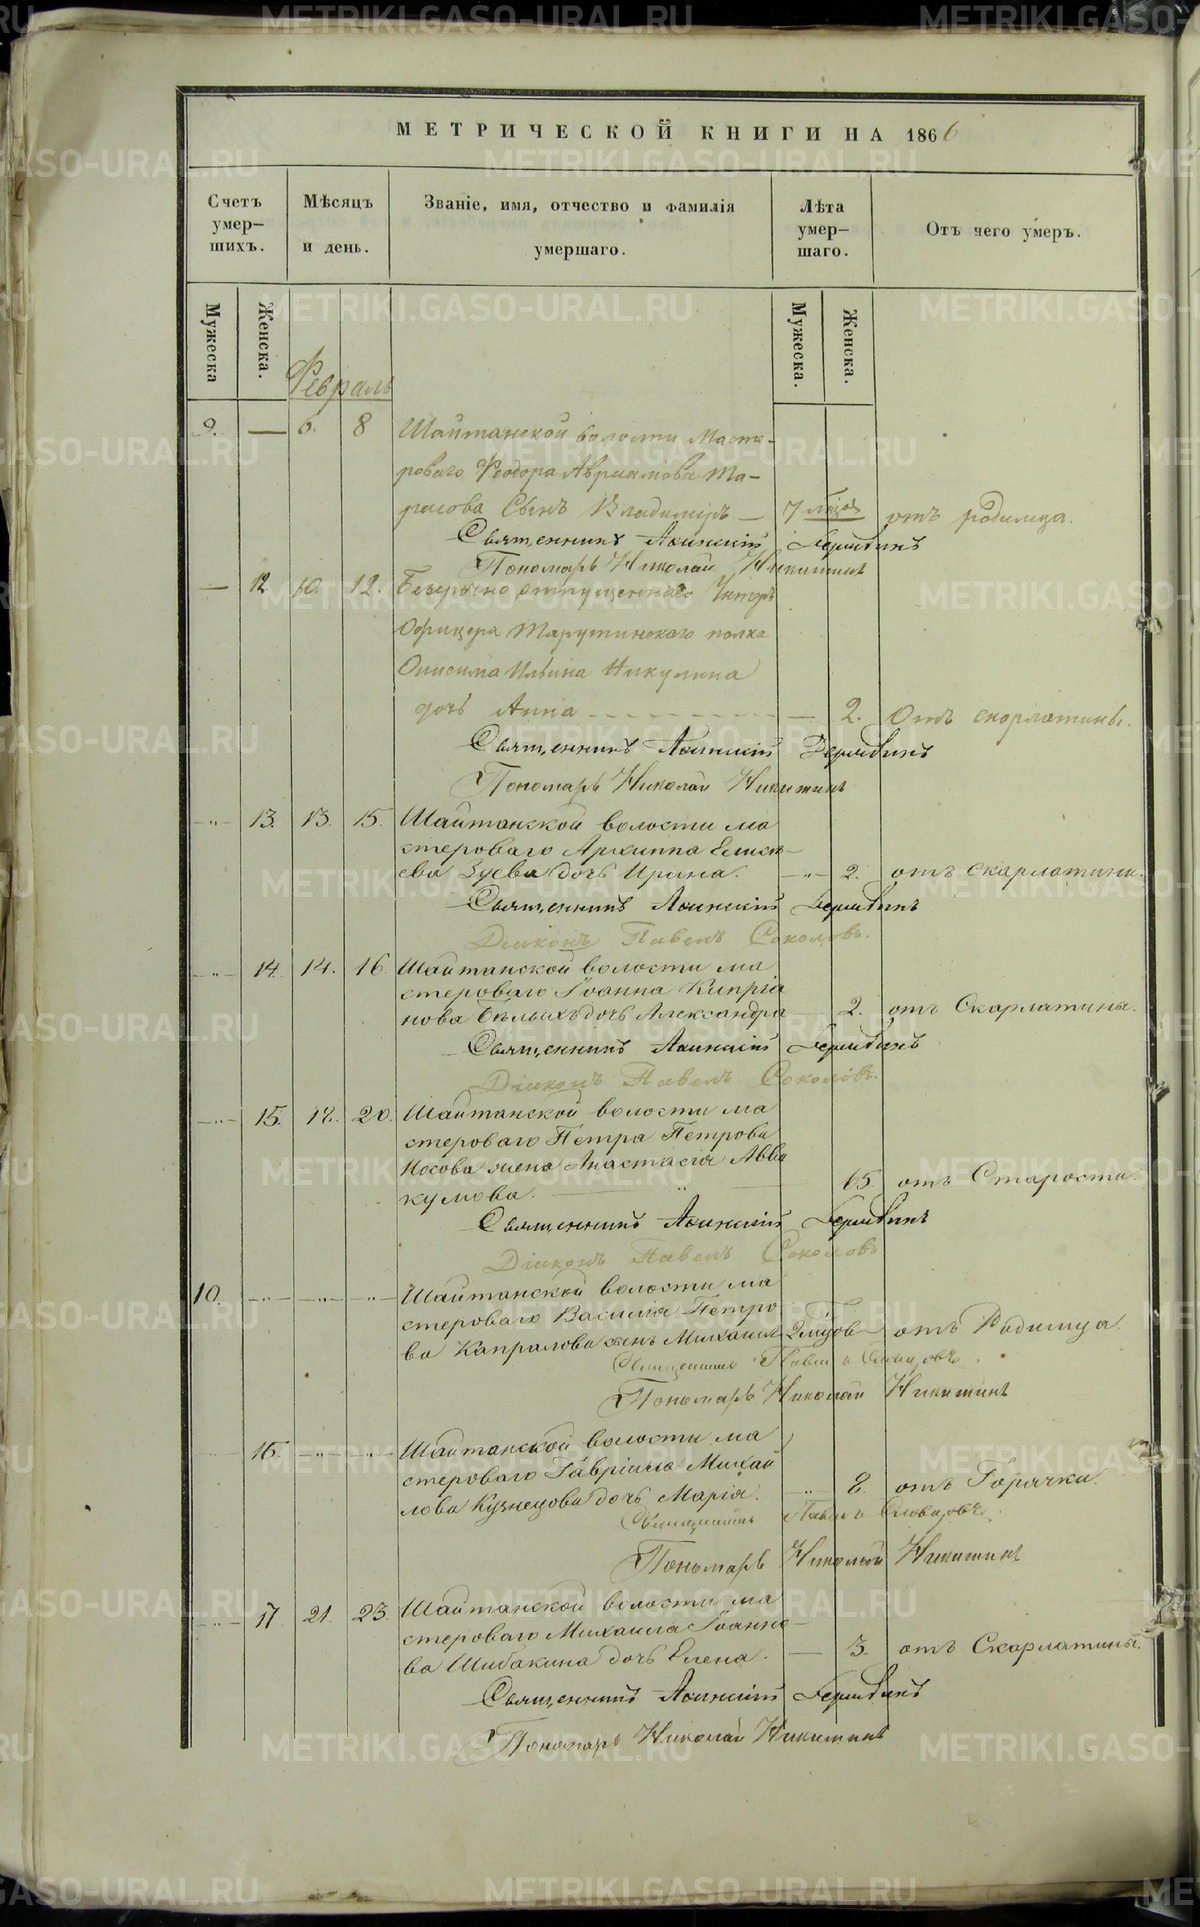 МЕТРИЧЕСКОЙ КНИГИ НА 1866
Счетъ умер-шихъ.
Мѣсяцъ и день.
Званіе, имя, отчество и фамилія умершаго.
Лѣта умер-шаго.
Отъ чего умеръ.
Мужеска
Женска.
Мужеска.
Женска.
Февраль
9. — 6. 8 Шайтанской волости Масте-
роваго Феодора Авраамова Та-
расова Сынъ Владимiръ — 7 мѣсяц. отъ родимца.
Священникъ
Пономарь Николай Никитинъ
— 12 10. 12. Безсрочно отпущеннаго Унтеръ
Офицера Тарутинскаго полка
Онисима Ильина Никулина
дочь Анна — 2. Отъ скорлатины.
Священникъ
Пономарь Николай Никитинъ
-"- 13. 13. 15. Шайтанской волости ма
стероваго Архиппа Елисѣ-
ева Зуева дочь Ирина. -"- 2. отъ скарлатины.
Священникъ
Діаконъ Павелъ Соколовъ.
-"- 14. 14. 16. Шайтанской волости ма
стероваго Іоанна Кипріа
нова Бѣлыхъ дочь Александра — 2. отъ Скарлатины.
Священникъ
Діаконъ Павелъ Соколовъ.
-"- 15. 18. 20. Шайтанской волости ма
стероваго Петра Петрова
Носова жена Анастасія Авва
кумова. — 65 отъ Старости.
Священникъ
Діаконъ Павелъ Соколовъ
10. -"- -"- -"- Шайтанской волости ма
стероваго Василія Петро
ва Капралова сынъ Михаилъ 2 мѣсяцов отъ Родимца.
Священникъ
Пономарь Николай Никитинъ
16. -"- -"- Шайтанской волости ма
стероваго Гавріила Михай
лова Кузнецова дочь Марія. -"- 8. отъ Горячки.
Священникъ
Пономарь Николай Никитинъ
-"- 17 21. 23. Шайтанской волости ма
стероваго Михаила Іоанно-
ва Шибакина дочь Елена. — 3. отъ Скарлатины.
Священникъ
Пономарь Николай Никитинъ
METRIKI.GASO-URAL.RU